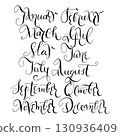 January February
March April
May June
July August
September October
November December
130936409